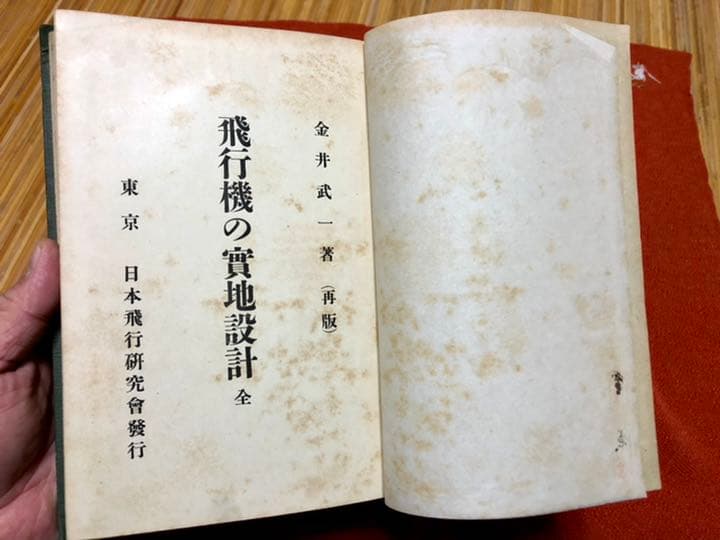 金井武一著（再版）
飛行機の實地設計 全
東京 日本飛行研究會發行